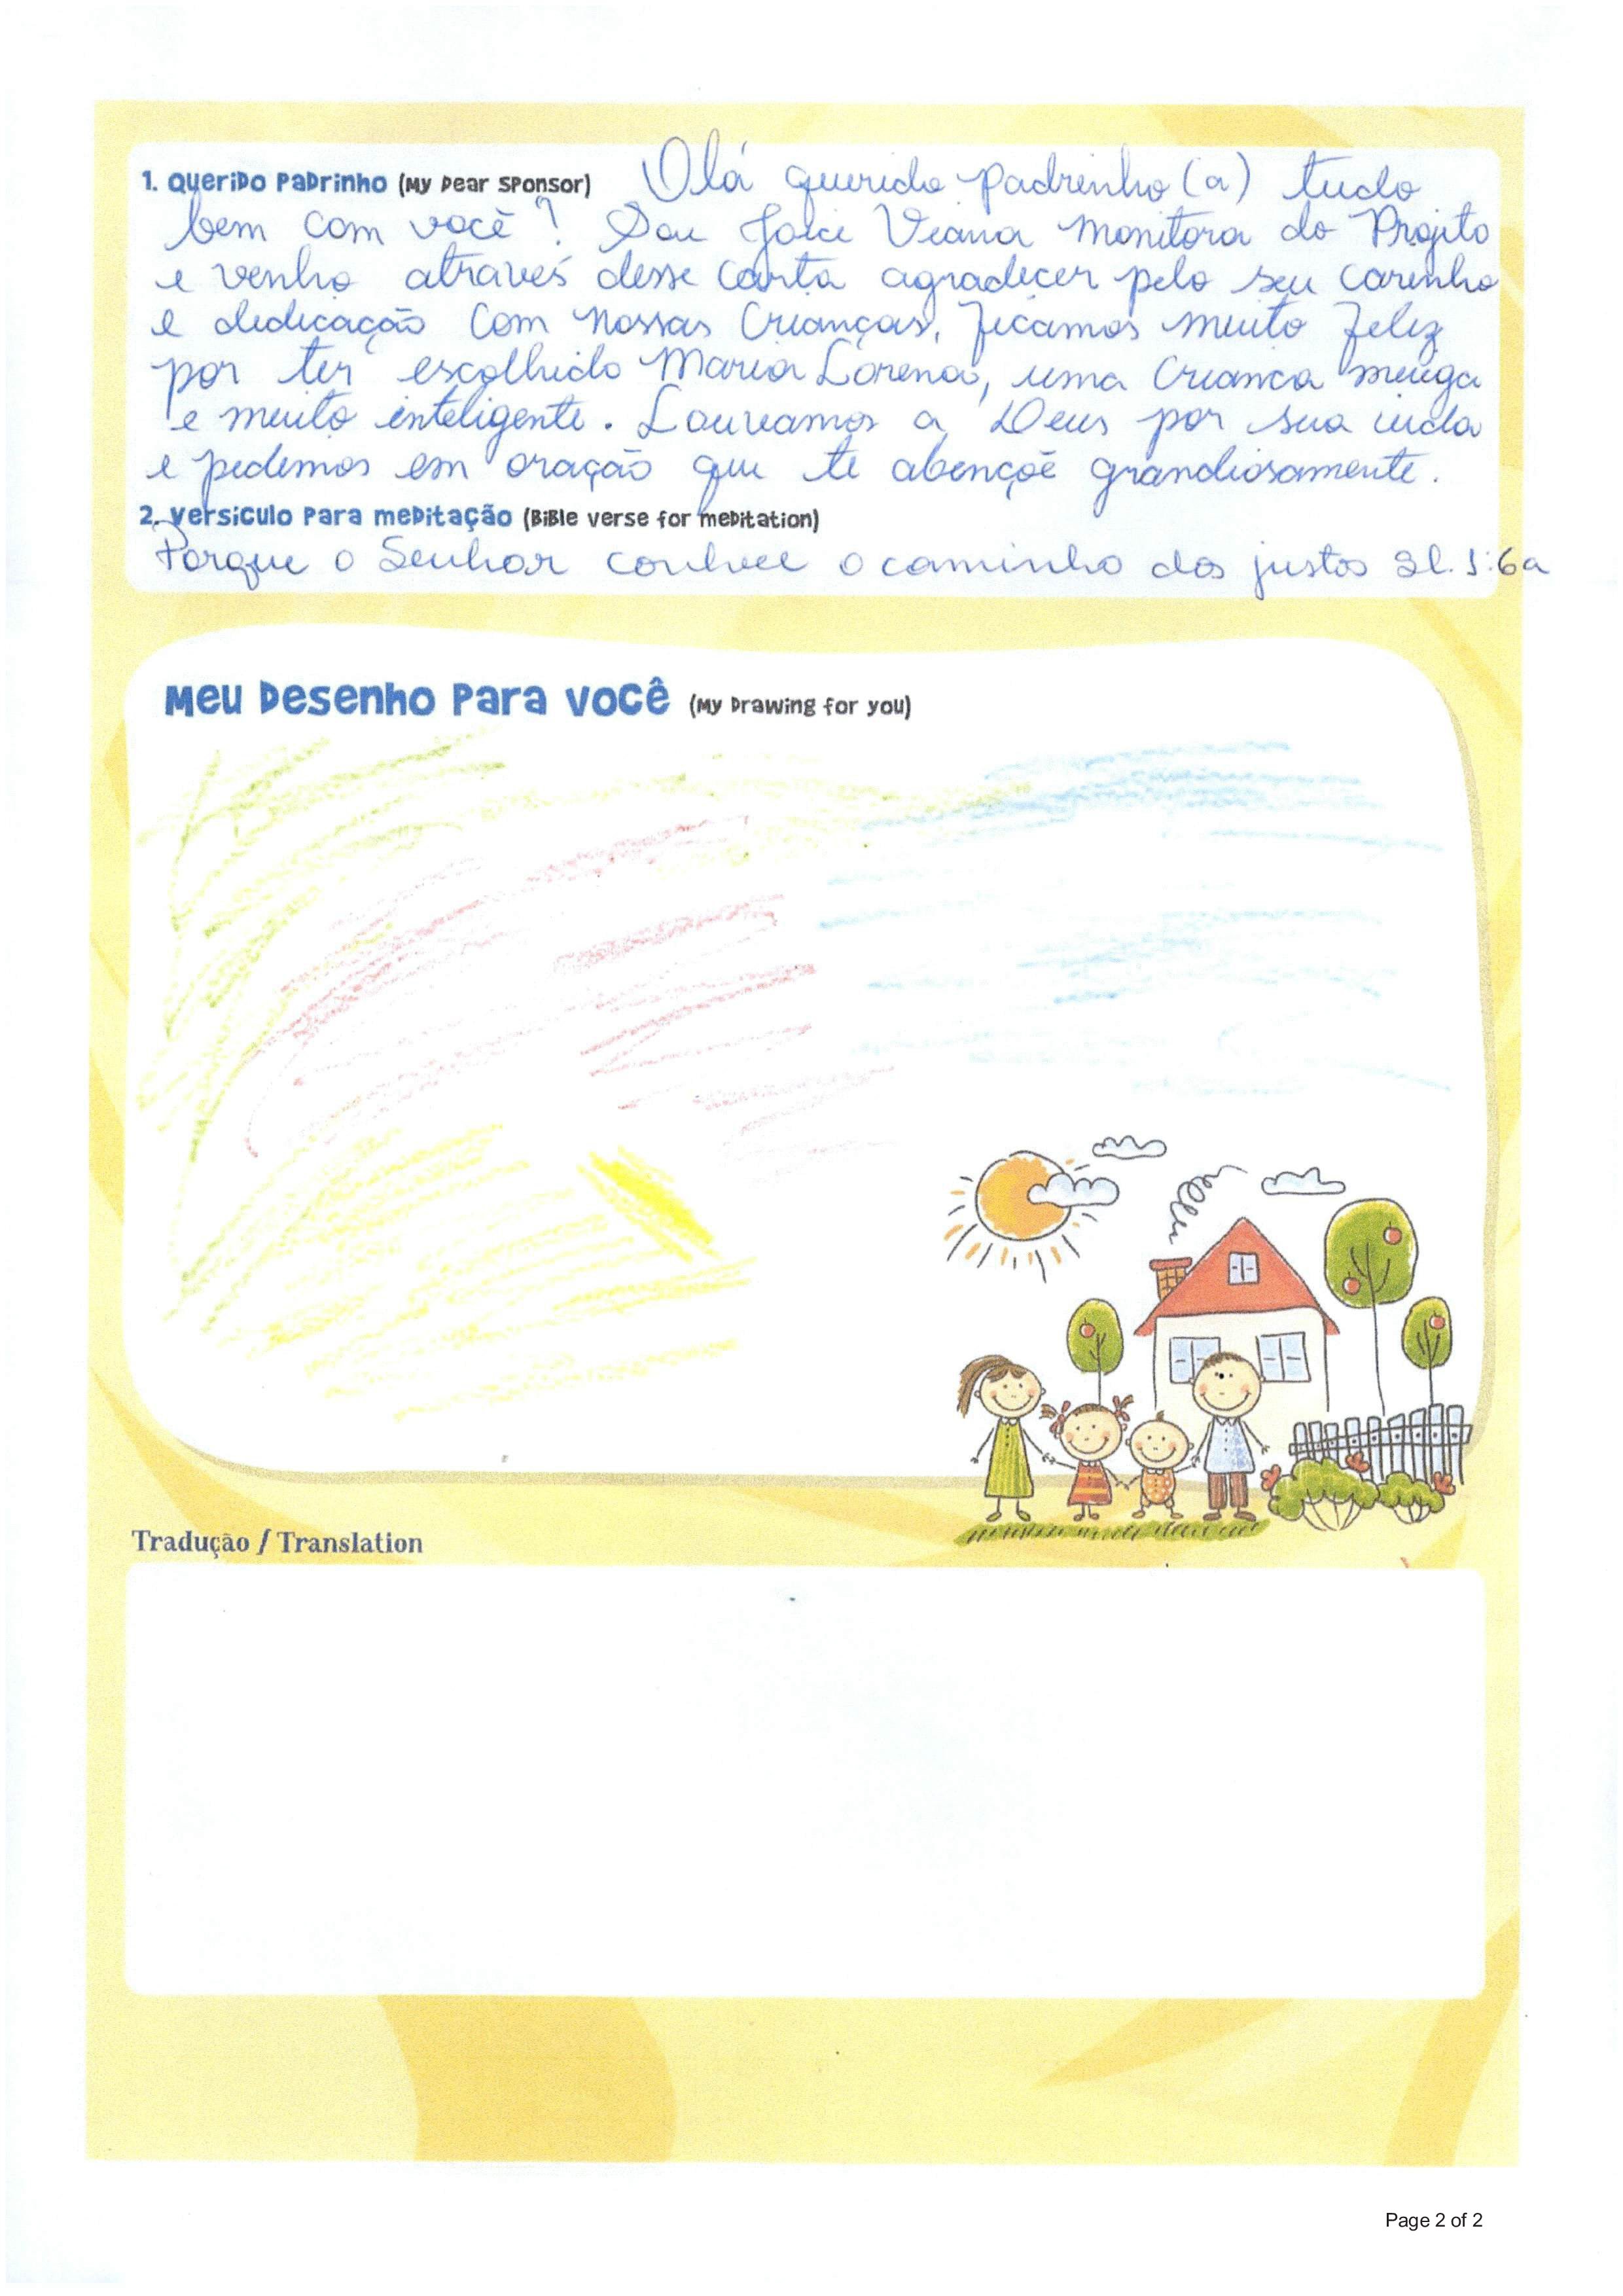 1. Querido Padrinho (My Dear Sponsor) Olá querido padrinho (a) tudo
bem com você? Sou Joice Viana monitora do Projeto
e venho através desse carta agradecer pelo seu carinho
e dedicação com nossas crianças, ficamos muito feliz
por ter escolhido Maria Lorena, uma crianca meiga
e muito inteligente. Louvamos a Deus por sua vida
e pedimos em oração que te abençoê grandiosamente.
2. Versículo para meditação (Bible verse for meditation)
Porque o Senhor conhece o caminho dos justos Sl. 1:6a
Meu Desenho Para Você (My Drawing for you)
Tradução / Translation
Page 2 of 2